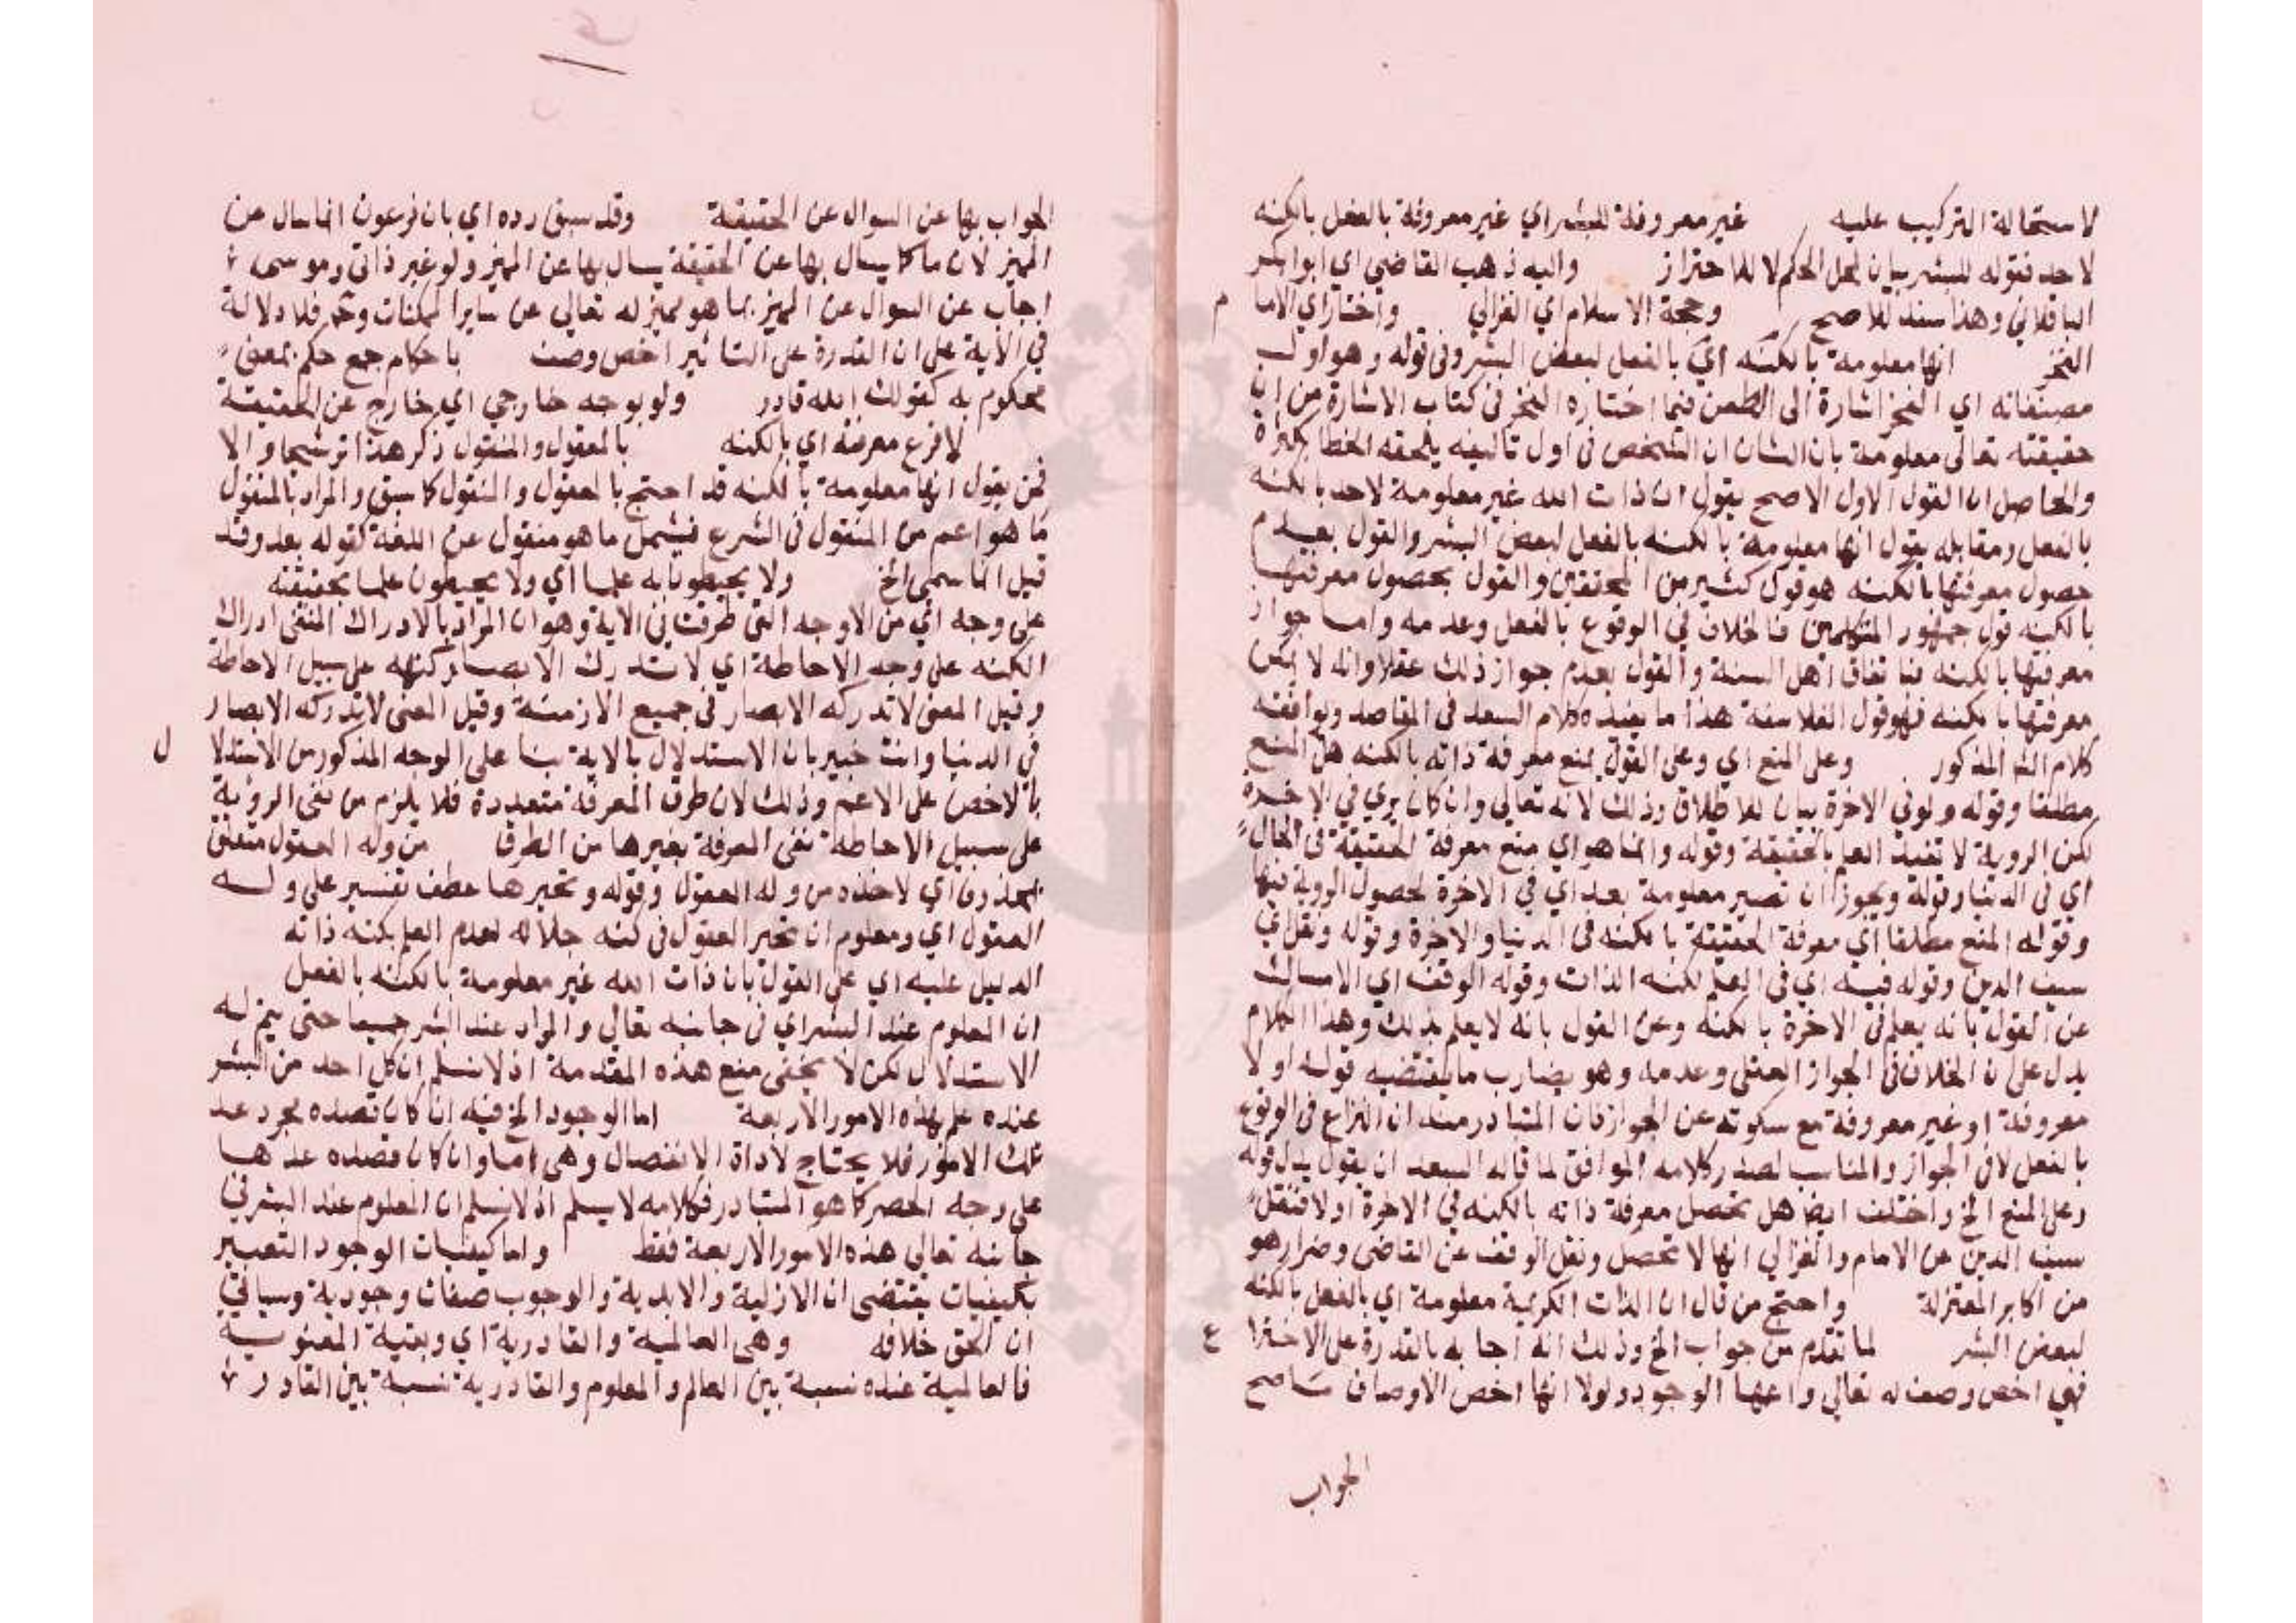 لاستحالة التركيب عليه غير معروفة للبشر اي غير معروفة بالفعل بالكنه
لاحد فقوله للبشر بيان لمحل الحكم لا للاحتراز واليه ذهب القاضي اي ابوا بكر
الباقلاني وهذا سند للاصح وحجة الاسلام اي الغزالي واختار اي الاما م
الفخر انها معلومة بالكنه اي بالفعل لبعض البشر وفي قوله وهو اول
مصنفاته اي الفخر اشارة الى الطعن فيما اختاره الفخر في كتاب الاشارة من ان
حقيقته تعالى معلومة بان الشان ان الشخص في اول تاليفه يلحقه الخطا بكثرة
والحاصل ان القول الاول الاصح يقول ان ذات الله غير معلومة لاحد بالكنه
بالفعل ومقابله يقول انها معلومة بالكنه بالفعل لبعض البشر والقول بعدم
حصول معرفتها بالكنه هو قول كثير من المحققين والقول بحصول معرفتها
بالكنه قول جمهور المتكلمين فالخلاف في الوقوع بالفعل وعدمه واما جواز
معرفتها بالكنه فباتفاق اهل السنة والقول بعدم جواز ذلك عقلا وانه لا يمكن
معرفتها بالكنه فهو قول الفلاسفة هذا ما يفيده كلام السعد في المقاصد ويوافقه
كلام الش المذكور وعلى المنع اي وعلى القول بمنع معرفة ذاته بالكنه هل المنع
مطلقا وقوله ولو في الاخرة بيان للاطلاق وذلك لانه تعالى وان كان يري في الاخرة
لكن الروية لا تفيد العلم بالحقيقة وقوله وانما هو اي منع معرفة الحقيقة في الحال
اي في الدنيا وقوله ويجوز ان تصير معلومة بعد اي في الاخرة لحصول الروية فيها
وقوله المنع مطلقا اي معرفة الحقيقة بالكنه في الدنيا والاخرة وقوله ونقل اي
سيف الدين وقوله فيه اي في العلم لكنه الذات وقوله الوقف اي الامساك
عن القول بانه يعلم في الاخرة بالكنه وعن القول بانه لا يعلم بذلك وهذا الكلام
يدل على ان الخلاف في الجواز العقلي وعدمه وهو يضارب ما يقتضيه قوله اولا
معروفة او غير معروفة مع سكوته عن الجواز فان المتبادر منه ان النزاع في الوقوع
بالفعل لا في الجواز والمناسب لصدر كلامه الموافق لما قاله السعد ان يقول بدل قوله
وعلى المنع الخ واختلف ايضا هل تحصل معرفة ذاته بالكنه في الاخرة او لا فنقل
سيف الدين عن الامام والغزالي انها لا تحصل ونقل الوقف عن القاضي وضرار هو
من اكابر المعتزلة واحتج من قال ان الذات الكريمة معلومة اي بالفعل بالكنه
لبعض البشر لما تقدم من جواب الخ وذلك انه اجابه بالقدرة على الاخترا ع
فهي اخص وصف له تعالي واعمها الوجود ولولا انها اخص الاوصاف ما صح
الجواب
الجواب بها عن السوال عن الحقيقة وقد سبق رده اي بان فرعون انما سال عن
المميز لان ما كما يسال بها عن الحقيقة يسال بها عن المميز ولو غير ذاتي وموسى
اجاب عن السوال عن المميز بما هو مميز له تعالى عن ساير الممكنات وحم فلا دلالة
في الاية على ان القدرة على التاثير اخص وصف باحكام جمع حكم بمعنى
محكوم به كقولك الله قادر ولو بوجه خارجي اي خارج عن الحقيقة
لا فرع معرفة اي بالكنه بالمعقول والمنقول ذكر هذا ترشيحا والا
فمن يقول انها معلومة بالكنه قد احتج بالمعقول والمنقول كما سبق والمراد بالمنقول
ما هو اعم من المنقول في الشرع فيشمل ما هو منقول عن اللغة كقوله بعد وقد
قيل انما سمي الخ ولا يحيطون به علما اي ولا يحيطون علما بحقيقته
على وجه اي من الاوجه التي طرقت في الاية وهو ان المراد بالادراك المنفي ادراك
الكنه على وجه الاحاطة اي لا تدرك الابصار كنهه على سبيل الاحاطة
وقيل المعنى لا تدركه الابصار في جميع الازمنة وقيل المعنى لا تدركه الابصار
في الدنيا وانت خبير بان الاستدلال بالاية بنا على الوجه المذكور من الاستدلا ل
بالاخص على الاعم وذلك لان طرق المعرفة متعددة فلا يلزم من نفي الروية
على سبيل الاحاطة نفي المعرفة بغيرها من الطرق من وله العقول متعلق
بمحذوف اي لاخذه من وله العقول وقوله وتحيرها عطف تفسير على وله
العقول اي ومعلوم ان تحير العقول في كنه جلاله لعدم العلم بكنه ذاته
الدليل عليه اي على القول بان ذات الله غير معلومة بالكنه بالفعل
ان المعلوم عند البشر اي في جانبه تعالي والمراد عند البشر جميعا حتى يتم له
الاستدلال لكن لا يخفى منع هذه المقدمة اذ لا نسلم ان كل احد من البشر
عنده علم بهذه الامور الاربعة اما الوجود الخ فيه ان كان قصده مجرد عد
تلك الامور فلا يحتاج لاداة الانفصال وهي اما وان كان قصده عدها
على وجه الحصر كما هو المتبادر فكلامه لا يسلم اذ لا نسلم ان المعلوم عند البشر في
جانبه تعالى هذه الامور الاربعة فقط واما كيفيات الوجود التعبير
بكيفيات يقتضي ان الازلية والابدية والوجوب صفات وجودية وسياتي
ان الحق خلافه وهي العالمية والقادرية اي وبقية المعنوية
فالعالمية عنده نسبة بين العالم والمعلوم والقادرية نسبة بين القادر